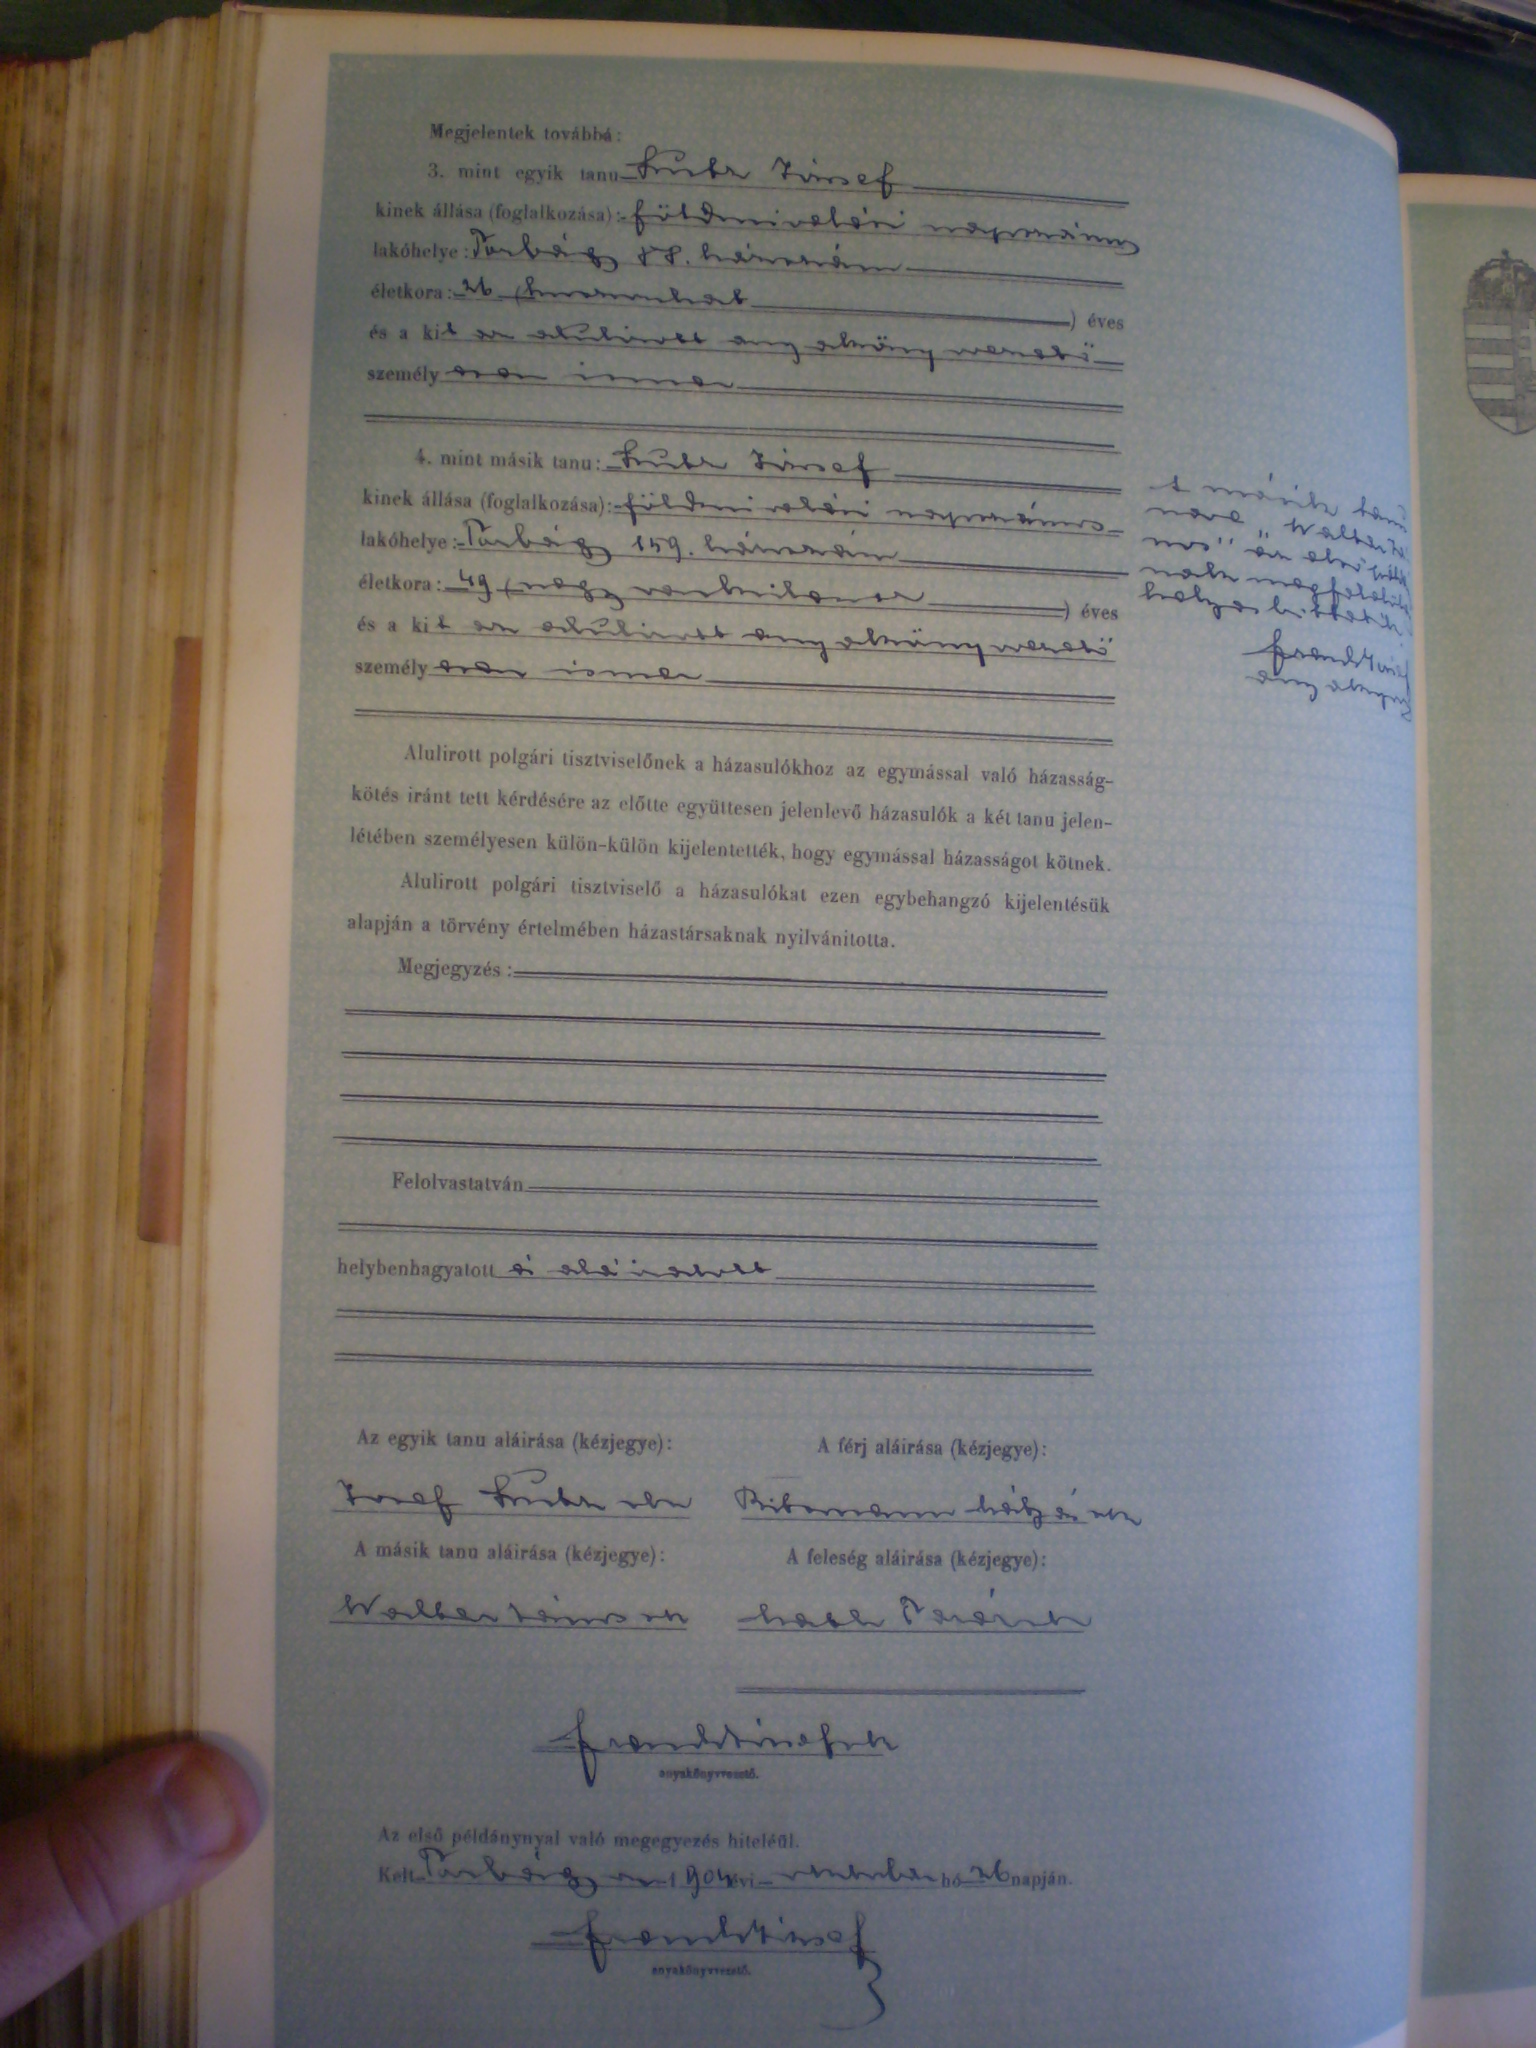 Megjelentek továbbá:
3. mint egyik tanu József
kinek állása (foglalkozása): földmivelési napszámos
lakóhelye: Torbágy 58. házszám
életkora: 26 (huszonhat) éves
és a kit az alulirott anyakönyvvezető
személy ismer
4. mint másik tanu: József
kinek állása (foglalkozása): földmivelési napszámos
lakóhelye: Torbágy 159. házszám
életkora: 49 (negyvenkilencz) éves
és a kit az alulirott anyakönyvvezető
személy ismer
A másik tanu
neve „Walter Já
nos" az első példá
nak megfelelőleg
helyesbittetik.
anyakönyv
Alulirott polgári tisztviselőnek a házasulókhoz az egymással való házasság-
kötés iránt tett kérdésére az előtte együttesen jelenlevő házasulók a két tanu jelen-
létében személyesen külön-külön kijelentették, hogy egymással házasságot kötnek.
Alulirott polgári tisztviselő a házasulókat ezen egybehangzó kijelentésük
alapján a törvény értelmében házastársaknak nyilvánitotta.
Megjegyzés:
Felolvastatván
helybenhagyatott és aláiratott
Az egyik tanu aláirása (kézjegye): A férj aláirása (kézjegye):
Josef Mátyás
A másik tanu aláirása (kézjegye): A feleség aláirása (kézjegye):
Walter János
anyakönyvvezető.
Az első példánynyal való megegyezés hiteléül.
Kelt Torbágyon 1904 évi október hó 26 napján.
anyakönyvvezető.